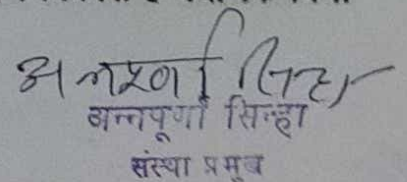 अन्नपूर्णा सिन्हा
अन्नपूर्णा सिन्हा
संस्था प्रमुख